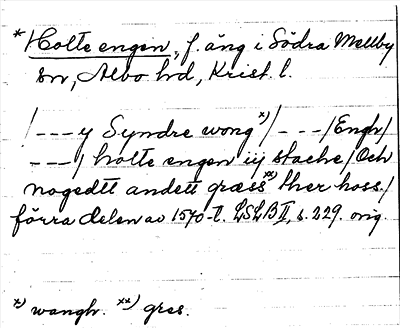 * Holte engen, f. äng i Södra Mellby
sn, Albo hd, Krist. l.
/---y Syndre wong x)/---/Engh/
---/ holte engen iij stache/Och
nogedtt andett græss xx) ther hoss./
förra delen av 1570-t. LSLB II, s. 229. orig.
x) wangh. xx) gres.